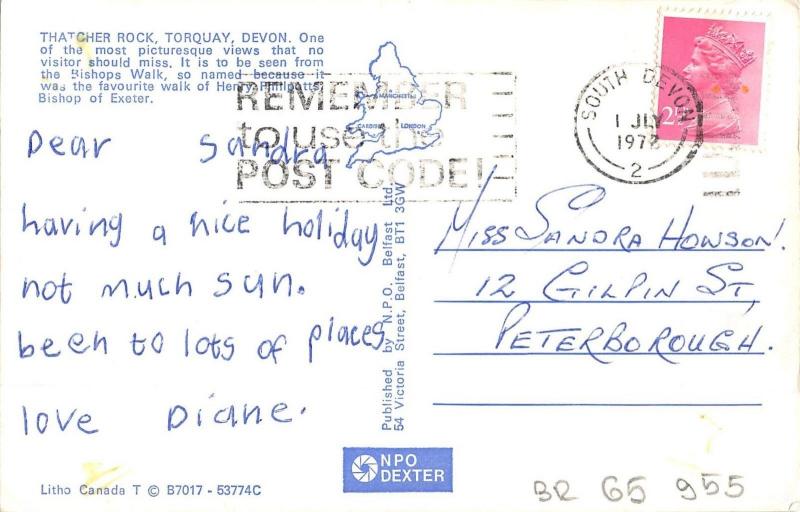 THATCHER ROCK, TORQUAY, DEVON. One
of the most picturesque views that no
visitor should miss. It is to be seen from
the Bishops Walk, so named because it
was the favourite walk of Henry Philpotts,
Bishop of Exeter.
REMEMBER
to use the
POST CODE!
MANCHESTER
CARDIFF LONDON
SOUTH DEVON
1 JLY
1972
2
Dear Sandra
having a nice holiday
not much sun.
been to lots of places
love Diane.
Published by N.P.O. Belfast Ltd.
54 Victoria Street, Belfast, BT1 3GW
MISS SANDRA HOWSON.
12 GILPIN ST,
PETERBOROUGH.
NPO
DEXTER
Litho Canada T © B7017 - 53774C
BR 65 955